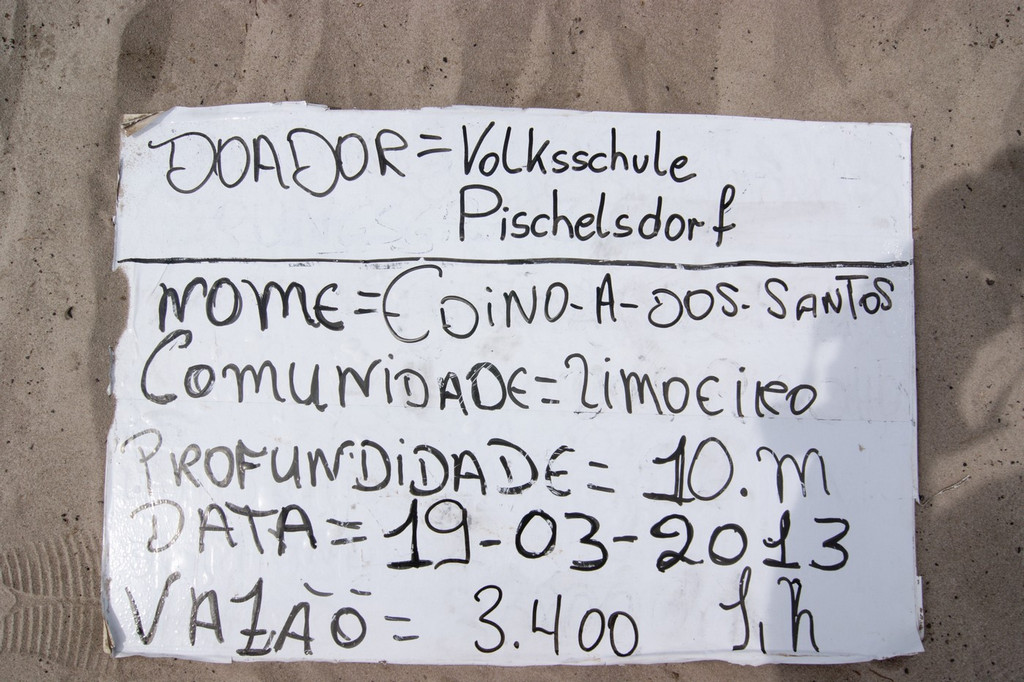 DOADOR = Volksschule
Pischelsdorf
NOME = EDINO-A-DOS-SANTOS
COMUNIDADE = LIMOEIRO
PROFUNDIDADE = 10.m
DATA = 19-03-2013
VAZÃO = 3.400 l,h